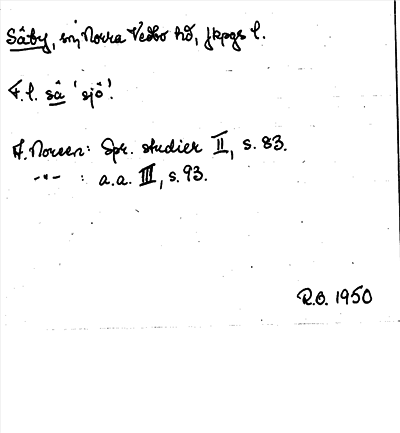 Såby, sn, Norra Vedbo hd, Jkpgs l.
F.l. så 'sjö'.
A. Noreen: Spr. studier II, s. 83.
-"- : a.a. III, s. 93.
R.O. 1950